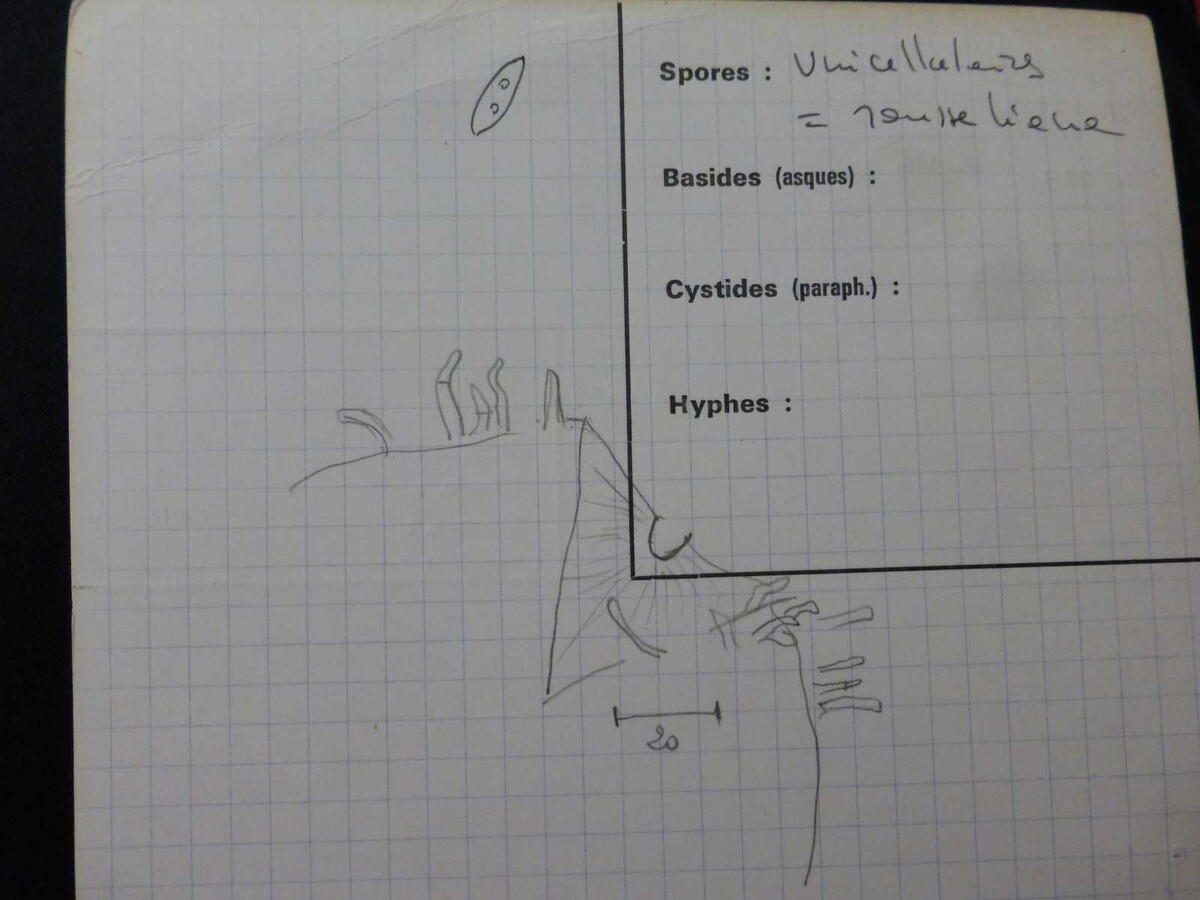 Spores : Unicellulaires
= rousseliana
Basides (asques) :
Cystides (paraph.) :
Hyphes :
20